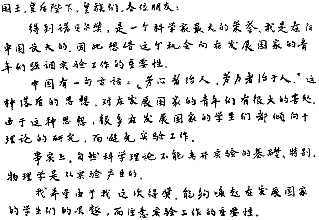 国王、皇后陛下，皇族们，各位朋友：
得到诺贝尔奖，是一个科学家最大的荣誉。我是在旧
中国长大的，因此想借这个机会向在发展国家的青
年们强调实验工作的重要性。
中国有一句古话：“劳心者治人，劳力者治于人。”这
种落后的思想，对在发展国家的青年们有很大的害处。
由于这种思想，很多在发展国家的学生们都倾向于
理论的研究，而避免实验工作。
事实上，自然科学理论不能离开实验的基础，特别，
物理学是从实验产生的。
我希望由于我这次得奖，能够唤起在发展国家
的学生们的兴趣，而注意实验工作的重要性。